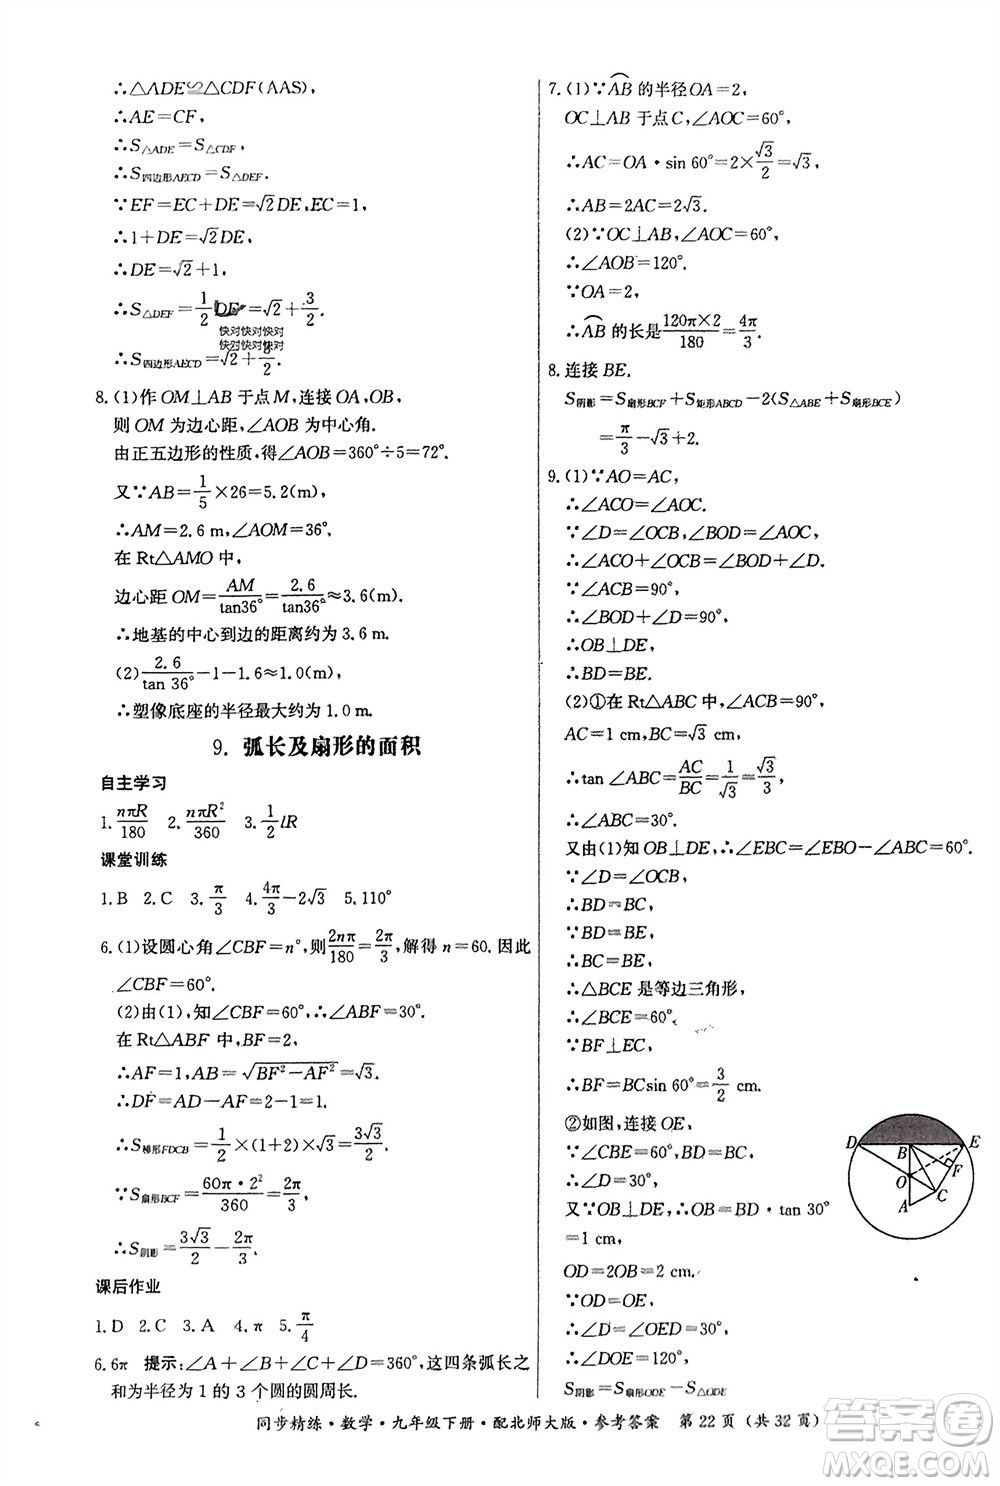 ∴△ADE≌△CDF(AAS),
∴AE=CF,
∴S△ADE=S△CDF,
∴S四边形AECD=S△DEF.
∵EF=EC+DE=√2DE,EC=1,
∴1+DE=√2DE,
∴DE=√2+1,
∴S△DEF=1/2DE²=√2+3/2.
快对快对快对
快对快对快对
∴S四边形AECD=√2+3/2.
8.(1)作OM⊥AB于点M,连接OA,OB,
则OM为边心距,∠AOB为中心角.
由正五边形的性质,得∠AOB=360°÷5=72°.
又∵AB=1/5×26=5.2(m),
∴AM=2.6 m,∠AOM=36°,
在Rt△AMO中,
边心距OM=AM/tan36°=2.6/tan36°≈3.6(m).
∴地基的中心到边的距离约为3.6 m.
(2)2.6/tan 36°-1-1.6≈1.0(m),
∴塑像底座的半径最大约为1.0 m.
9. 弧长及扇形的面积
自主学习
1.nπR/180 2.nπR²/360 3.1/2lR
课堂训练
1.B 2.C 3.π/3 4.4π/3-2√3 5.110°
6.(1)设圆心角∠CBF=n°,则2nπ/180=2π/3,解得n=60.因此
∠CBF=60°.
(2)由(1),知∠CBF=60°,∴∠ABF=30°.
在Rt△ABF中,BF=2,
∴AF=1,AB=√(BF²-AF²)=√3.
∴DF=AD-AF=2-1=1.
∴S梯形FDCB=1/2×(1+2)×√3=3√3/2.
∵S扇形BCF=60π·2²/360=2π/3,
∴S阴影=3√3/2-2π/3.
课后作业
1.D 2.C 3.A 4.π 5.π/4
6.6π 提示:∠A+∠B+∠C+∠D=360°,这四条弧长之
和为半径为1的3个圆的圆周长.
7.(1)∵AB的半径OA=2,
OC⊥AB于点C,∠AOC=60°,
∴AC=OA·sin 60°=2×√3/2=√3,
∴AB=2AC=2√3.
(2)∵OC⊥AB,∠AOC=60°,
∴∠AOB=120°.
∵OA=2,
∴AB的长是120π×2/180=4π/3.
8.连接BE.
S阴影=S扇形BCF+S矩形ABCD-2(S△ABE+S扇形BCE)
=π/3-√3+2.
9.(1)∵AO=AC,
∴∠ACO=∠AOC.
∵∠D=∠OCB,∠BOD=∠AOC,
∴∠ACO+∠OCB=∠BOD+∠D.
∵∠ACB=90°,
∴∠BOD+∠D=90°,
∴OB⊥DE,
∴BD=BE.
(2)①在Rt△ABC中,∠ACB=90°,
AC=1 cm,BC=√3,
∴tan ∠ABC=AC/BC=1/√3=√3/3,
∴∠ABC=30°.
又由(1)知OB⊥DE,∴∠EBC=∠EBO-∠ABC=60°.
∵∠D=∠OCB,
∴BD=BC.
∵BD=BE,
∴BC=BE,
∴△BCE是等边三角形,
∴∠BCE=60°.
∵BF⊥EC,
∴BF=BCsin 60°=3/2 cm.
②如图,连接OE,
∵∠CBE=60°,∠D=∠OCB,
∴∠D=30°,
又∵OB⊥DE,∴OB=BD·tan 30°
=1 cm,
OD=2OB=2 cm.
∵OD=OE,
∴∠D=∠OED=30°,
∴∠DOE=120°,
S阴影=S扇形ODE-S△ODE=
D B E
O F
A C
同步精练·数学·九年级下册·配北师大版·参考答案 第22页(共32页)
答案圈
MXQE.COM